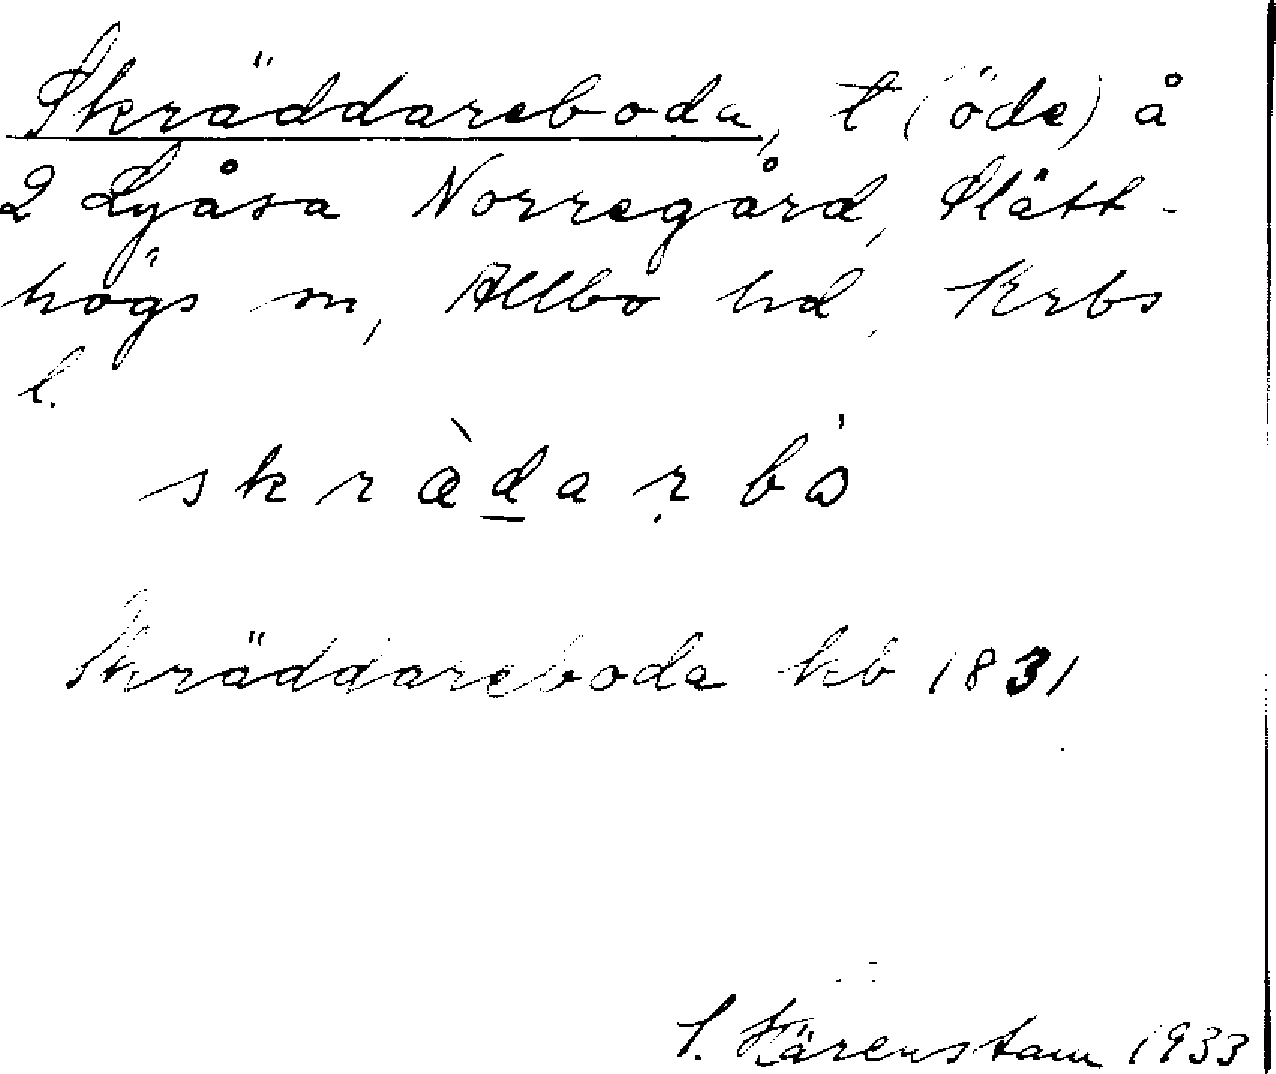 Skräddareboda, t (öde) å
2 Lyåsa Norregård, Slätt-
högs sn, Allbo hd, Krbs
l.
skrädarbo
Skräddareboda kb 1831
S. Härenstam 1933